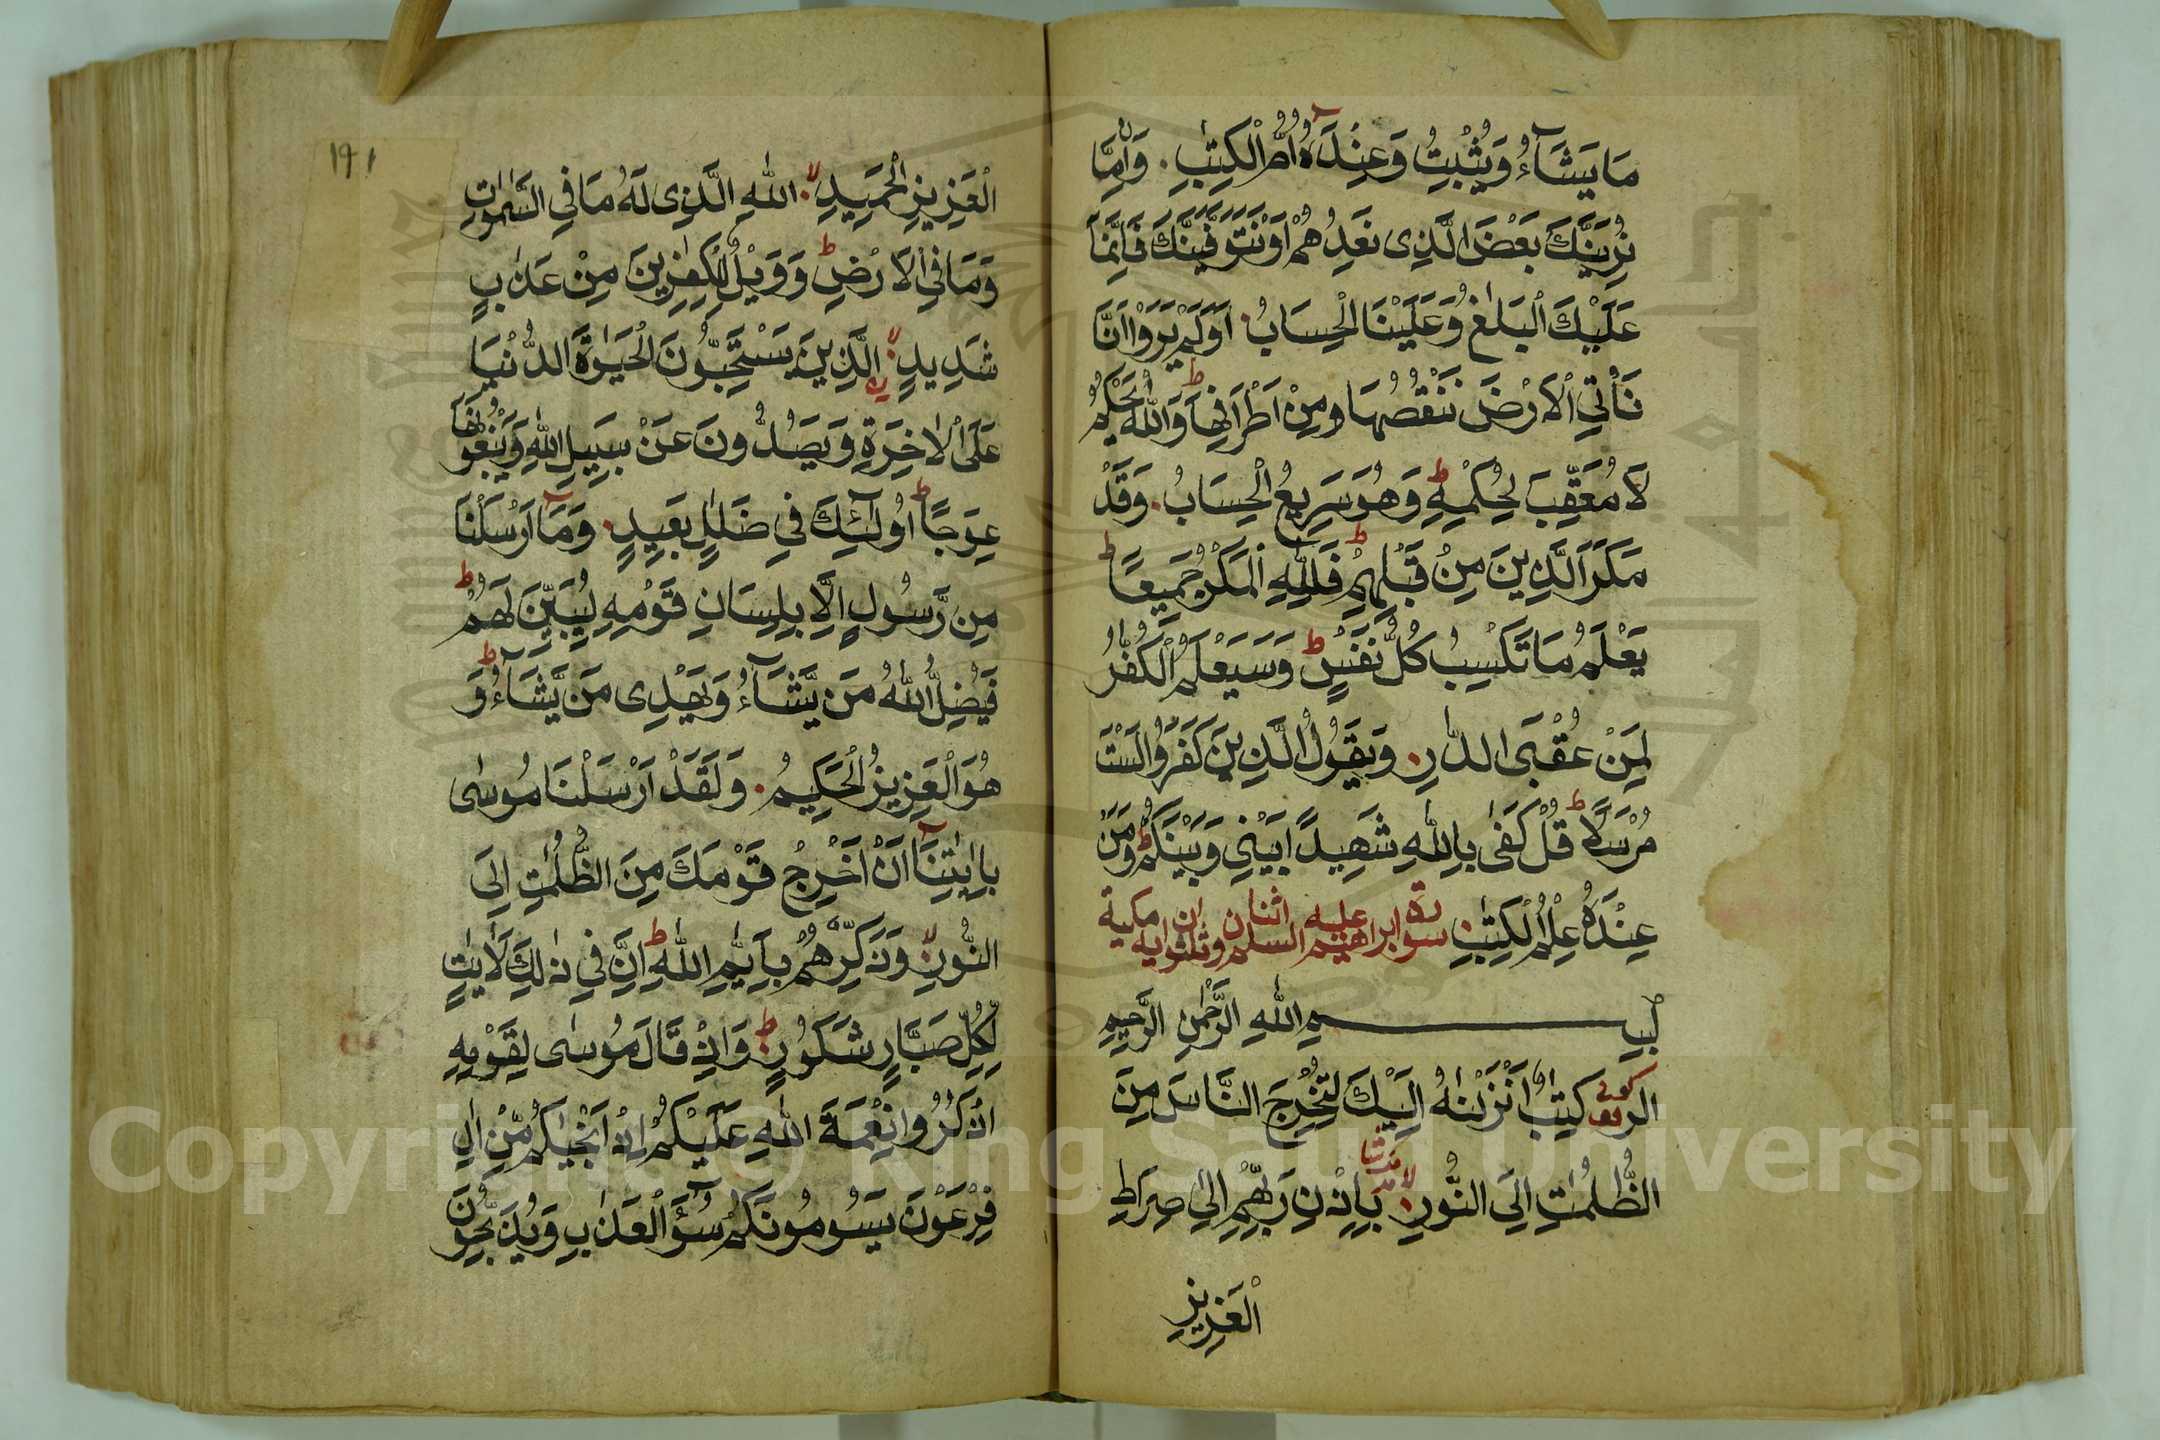 مَا يَشَآءُ وَيُثْبِتُ وَعِنْدَهُ اُمُّ الْكِتٰبِ ۰ وَاِمَّا
نُرِيَنَّكَ بَعْضَ الَّذِى نَعِدُهُمْ اَوْ نَتَوَفَّيَنَّكَ فَاِنَّمَا
عَلَيْكَ الْبَلٰغُ وَعَلَيْنَا الْحِسَابُ ۰ اَوَلَمْ يَرَوْا اَنَّا
نَأْتِى الْاَرْضَ نَنْقُصُهَا مِنْ اَطْرَافِهَا ط وَاللّٰهُ يَحْكُمُ
لَا مُعَقِّبَ لِحُكْمِهِ ط وَهُوَ سَرِيعُ الْحِسَابُ ۰ وَقَدْ
مَكَرَ الَّذِينَ مِنْ قَبْلِهِمْ ط فَلِلّٰهِ الْمَكْرُ جَمِيعًا ط
يَعْلَمُ مَا تَكْسِبُ كُلُّ نَفْسٍ ط وَسَيَعْلَمُ الْكُفّٰرُ
لِمَنْ عُقْبَى الدّٰرِ ۰ وَيَقُولُ الَّذِينَ كَفَرُوا لَسْتَ
مُرْسَلًا ط قُلْ كَفٰى بِاللّٰهِ شَهِيدًا بَيْنِى وَبَيْنَكُمْ ط وَمَنْ
عِنْدَهُ عِلْمُ الْكِتٰبِ ۰ سورة ابراهيم عليه السلم اثنان وثلثون اية مكية
بِسْمِ اللّٰهِ الرَّحْمٰنِ الرَّحِيمِ
الر كِتٰبٌ اَنْزَلْنٰهُ اِلَيْكَ لِتُخْرِجَ النَّاسَ مِنَ
الظُّلُمٰتِ اِلَى النُّورِ لا بِاِذْنِ رَبِّهِمْ اِلٰى صِرَاطِ
الْعَزِيزِ
١٩١
الْعَزِيزِ الْحَمِيدِ لا ۰ اللّٰهِ الَّذِى لَهُ مَا فِى السَّمٰوٰتِ
وَمَا فِى الْاَرْضِ ط وَوَيْلٌ لِلْكٰفِرِينَ مِنْ عَذٰبٍ
شَدِيدٍ لا ۰ الَّذِينَ يَسْتَحِبُّونَ الْحَيٰوةَ الدُّنْيَا
عَلَى الْاٰخِرَةِ وَيَصُدُّونَ عَنْ سَبِيلِ اللّٰهِ وَيَبْغُونَهَا
عِوَجًا ط اُولٰٓئِكَ فِى ضَلٰلٍ بَعِيدٍ ۰ وَمَآ اَرْسَلْنَا
مِنْ رَّسُولٍ اِلَّا بِلِسَانِ قَوْمِهِ لِيُبَيِّنَ لَهُمْ ط
فَيُضِلُّ اللّٰهُ مَنْ يَّشَآءُ وَيَهْدِى مَنْ يَّشَآءُ ط وَ
هُوَ الْعَزِيزُ الْحَكِيمُ ۰ وَلَقَدْ اَرْسَلْنَا مُوسٰى
بِاٰيٰتِنَآ اَنْ اَخْرِجْ قَوْمَكَ مِنَ الظُّلُمٰتِ اِلَى
النُّورِ لا وَذَكِّرْهُمْ بِاَيّٰمِ اللّٰهِ ط اِنَّ فِى ذٰلِكَ لَاٰيٰتٍ
لِكُلِّ صَبَّارٍ شَكُورٍ ۰ وَاِذْ قَالَ مُوسٰى لِقَوْمِهِ
اذْكُرُوا نِعْمَةَ اللّٰهِ عَلَيْكُمْ اِذْ اَنْجٰيكُمْ مِّنْ اٰلِ
فِرْعَوْنَ يَسُومُونَكُمْ سُوٓءَ الْعَذٰبِ وَيُذَبِّحُونَ
Copyright © King Saud University